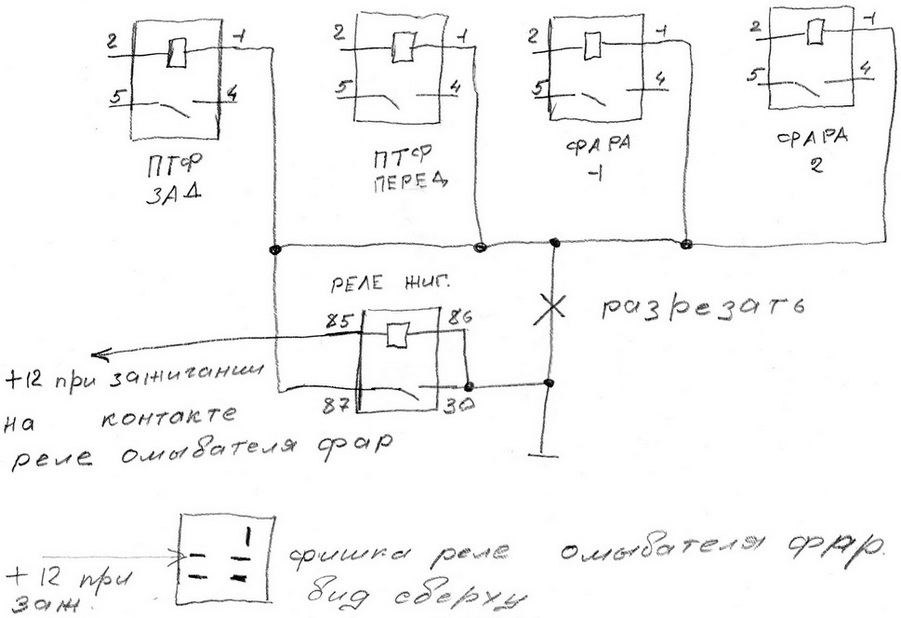 2 1 2 1 2 1 2 1
5 4 5 4 5 4 5 4
ПТФ
ЗАД
ПТФ
ПЕРЕД
ФАРА
1
ФАРА
2
РЕЛЕ ЖИГ.
85 86
87 30
разрезать
+12 при зажигании
на контакте
реле омывателя фар
+12 при
заж.
фишка реле омывателя фар.
вид сверху